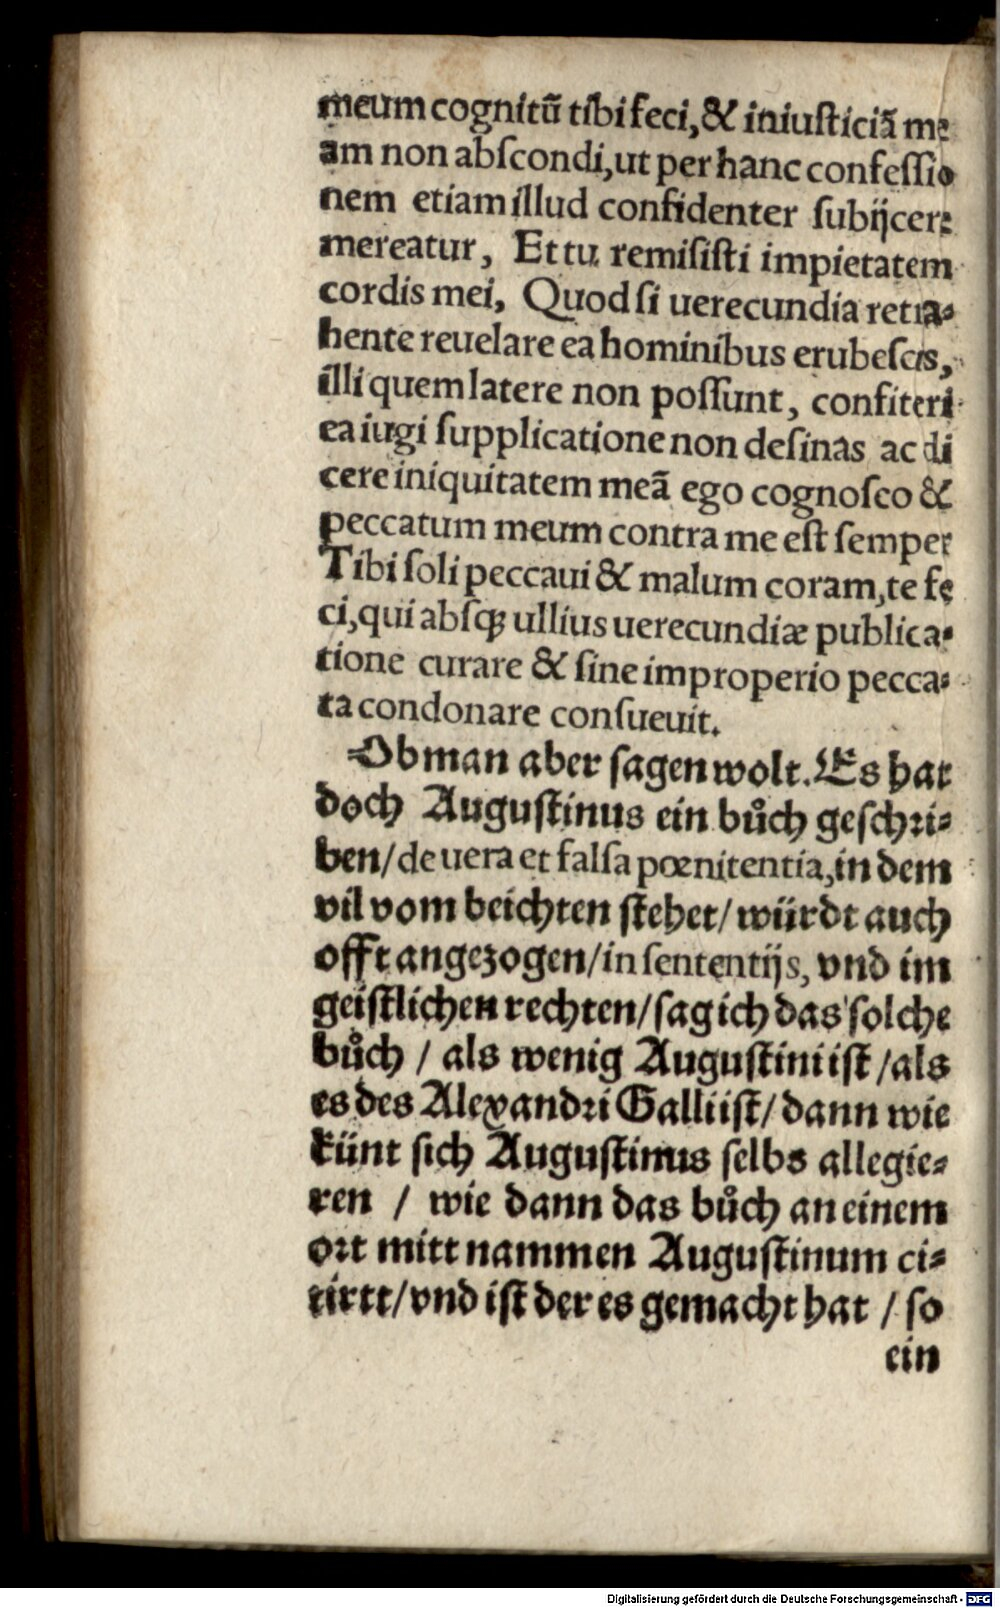 meum cognitũ tibi feci, & iniusticiã me
am non abscondi, ut per hanc confessio
nem etiam illud confidenter subijcere
mereatur, Et tu remisisti impietatem
cordis mei, Quod si uerecundia retra⸗
hente reuelare ea hominibus erubescis,
illi quem latere non possunt, confiteri
ea iugi supplicatione non desinas ac di
cere iniquitatem meã ego cognosco &
peccatum meum contra me est semper
Tibi soli peccaui & malum coram, te fe
ci, qui absqꝫ ullius uerecundiæ publica⸗
tione curare & sine improperio pecca⸗
ta condonare consueuit.
Ob man aber sagen wolt. Es hat
doch Augustinus ein bůch geschri⸗
ben / de uera et falsa pœnitentia, in dem
vil vom beichten stehet / würdt auch
offt angezogen / in sententijs, vnd im
geistlichen rechten / sag ich das solche
bůch / als wenig Augustini ist / als
es des Alexandri Galli ist / dann wie
künt sich Augustinus selbs allegie⸗
ren / wie dann das bůch an einem
ort mitt nammen Augustinum ci⸗
tirtt / vnd ist der es gemacht hat / so
ein
Digitalisierung gefördert durch die Deutsche Forschungsgemeinschaft - DFG